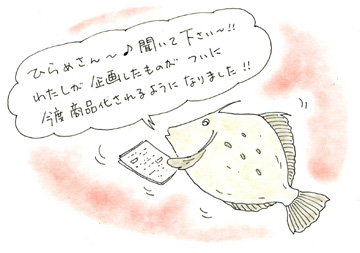 ひらめさん〜♪聞いて下さい〜!!
わたしが企画したものがついに
今度商品化されるようになりました!!